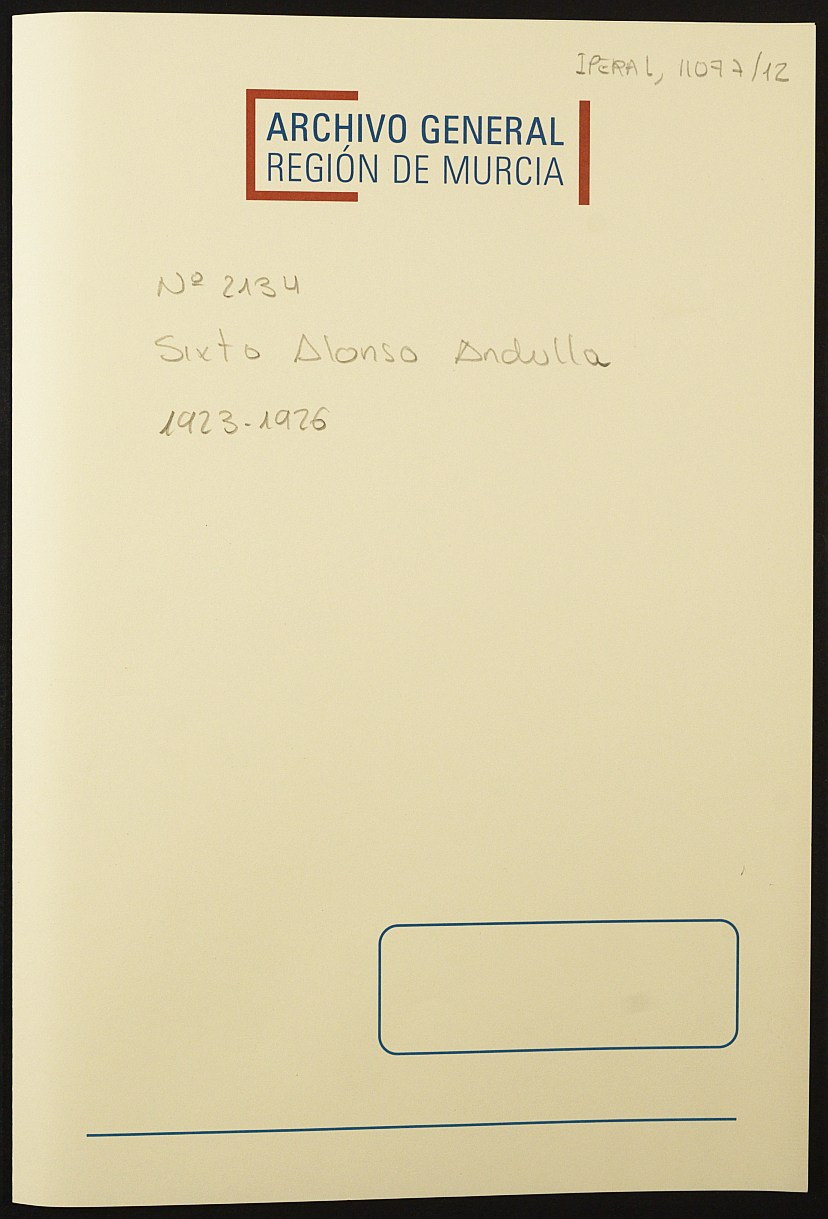 IPERAL, 11077/12
ARCHIVO GENERAL
REGIÓN DE MURCIA
Nº 2134
Sixto Alonso Andulla
1923-1926